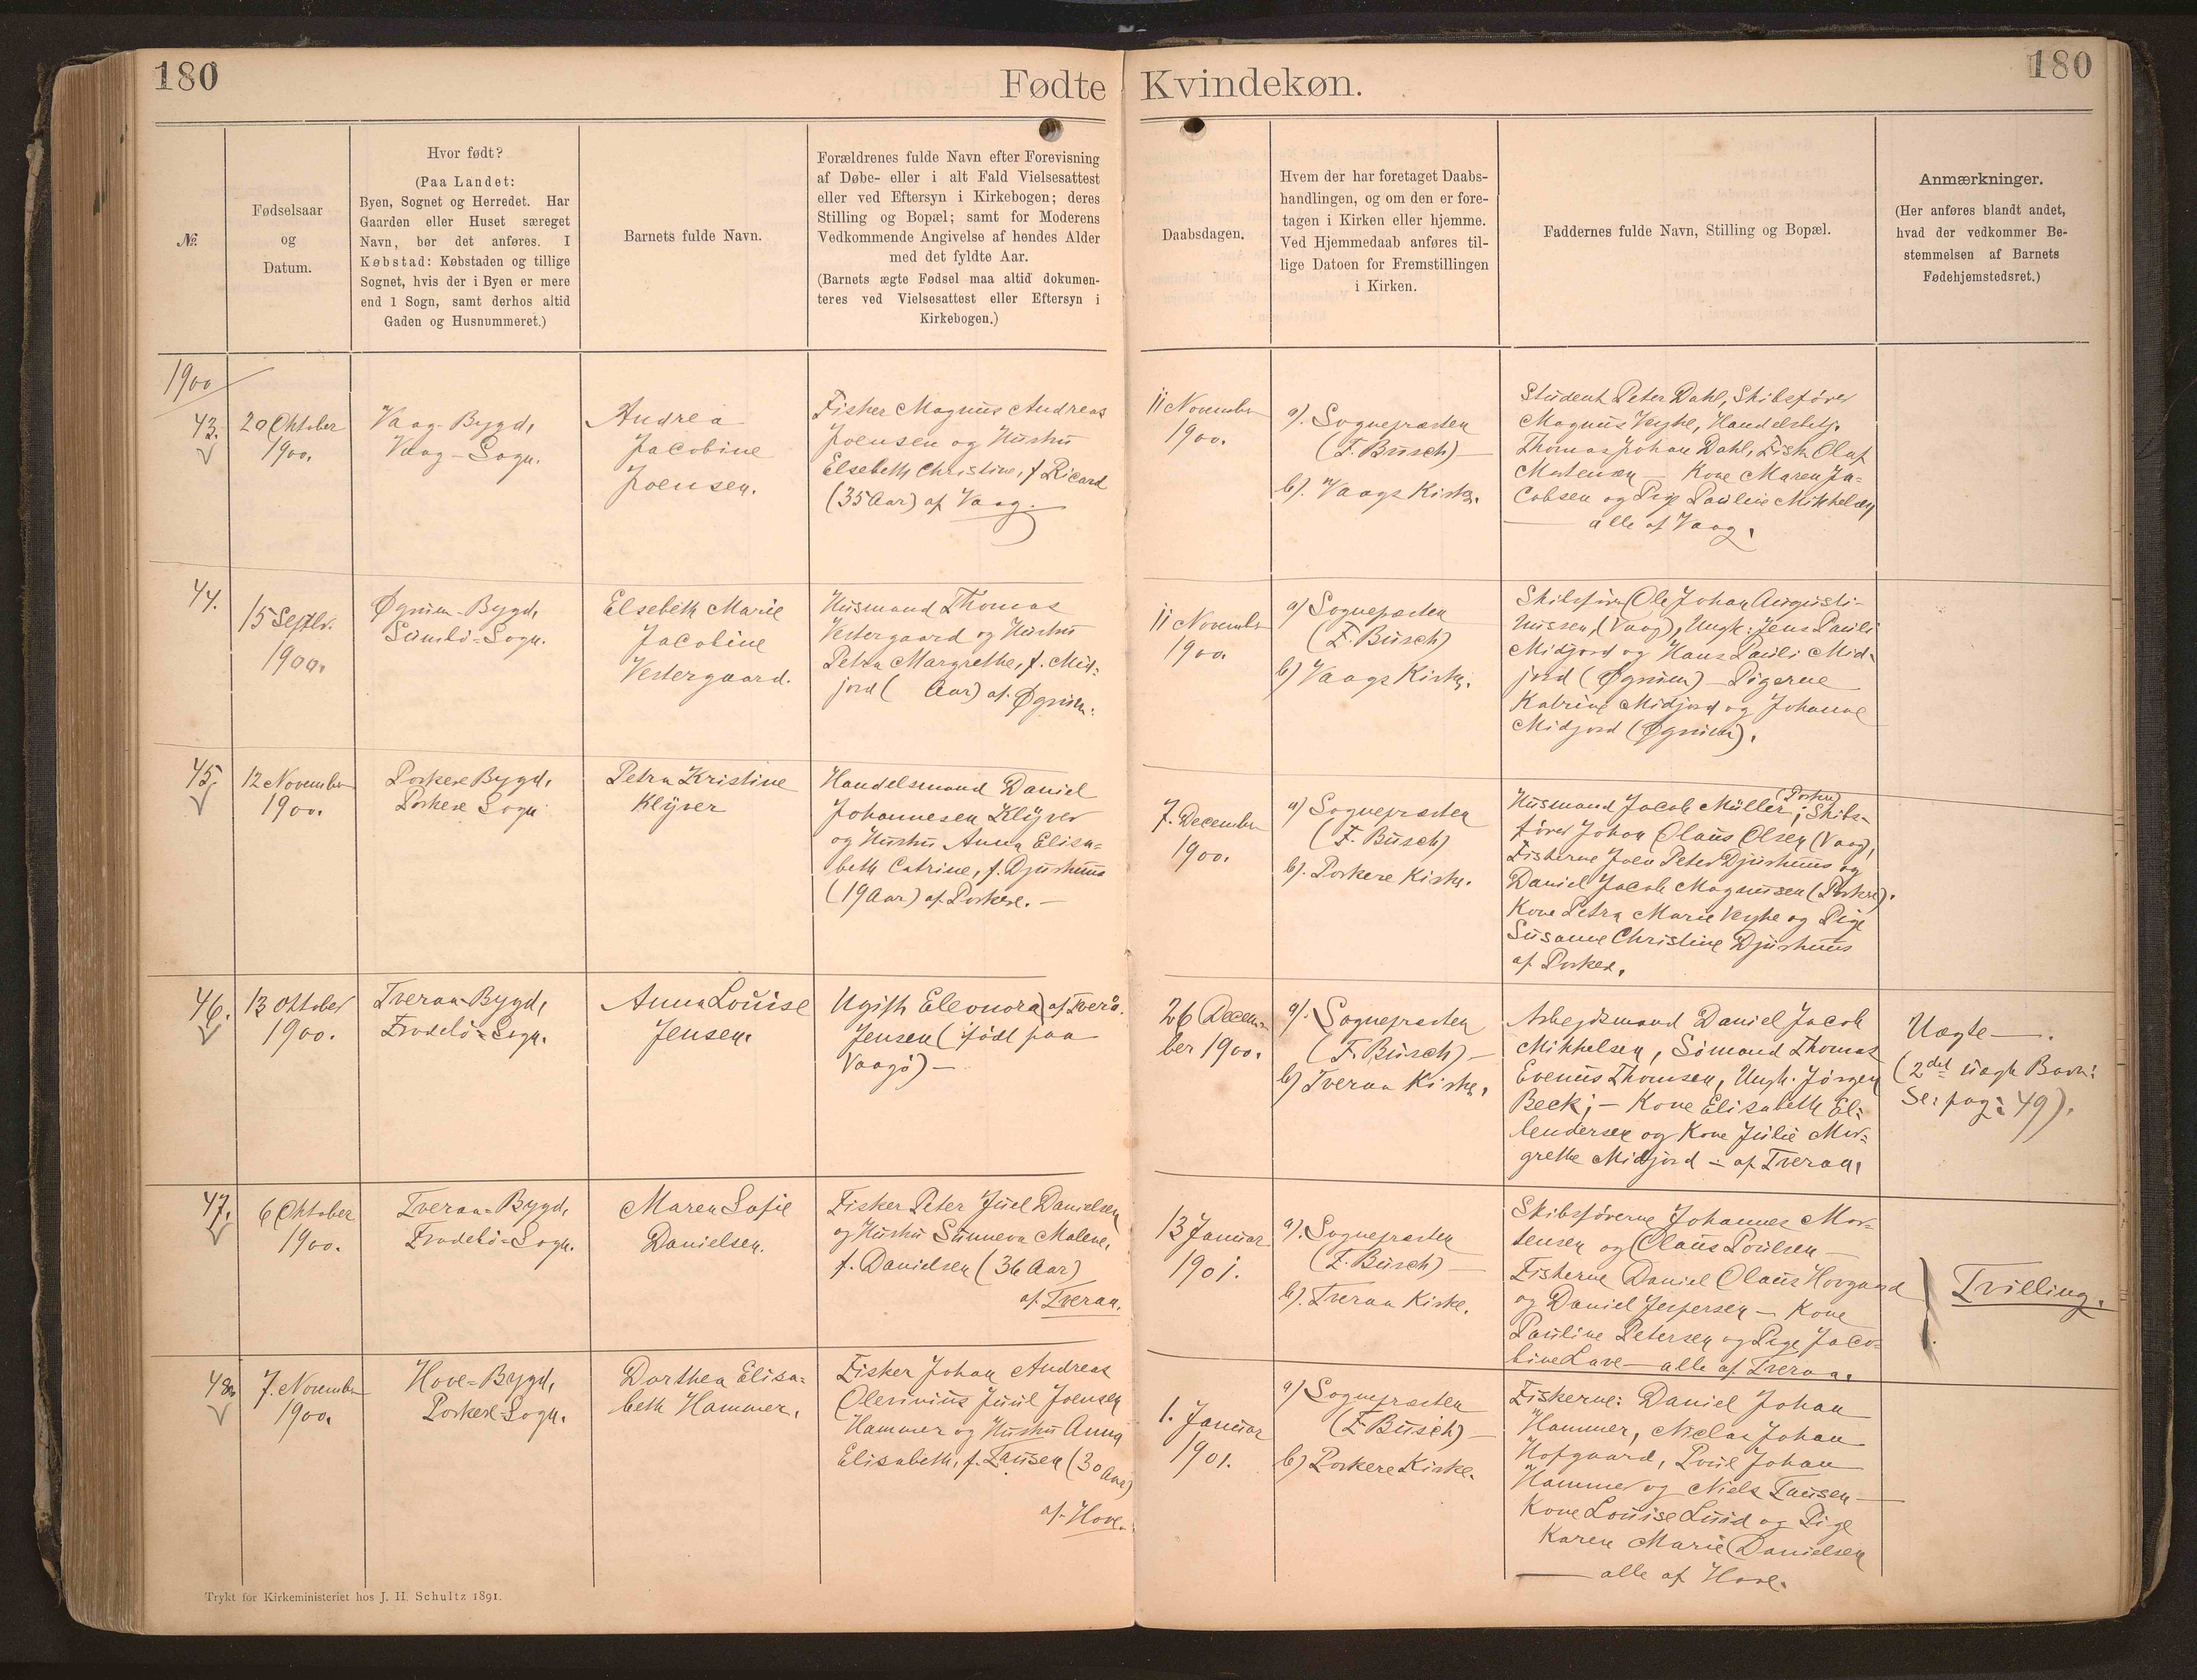 180
Fødte
Kvindekøn.
180
№.
Fødselsaar
og
Datum.
Hvor født?
(Paa Landet:
Byen, Sognet og Herredet. Har
Gaarden eller Huset særeget
Navn, bør det anføres. I
Købstad: Købstaden og tillige
Sognet, hvis der i Byen er mere
end 1 Sogn, samt derhos altid
Gaden og Husnummeret.)
Barnets fulde Navn.
Forældrenes fulde Navn efter Forevisning
af Døbe- eller i alt Fald Vielsesattest
eller ved Eftersyn i Kirkebogen; deres
Stilling og Bopæl; samt for Moderens
Vedkommende Angivelse af hendes Alder
med det fyldte Aar.
(Barnets ægte Fødsel maa altid dokumen-
teres ved Vielsesattest eller Eftersyn i
Kirkebogen.)
Daabsdagen.
Hvem der har foretaget Daabs-
handlingen, og om den er fore-
tagen i Kirken eller hjemme.
Ved Hjemmedaab anføres til-
lige Datoen for Fremstillingen
i Kirken.
Faddernes fulde Navn, Stilling og Bopæl.
Anmærkninger.
(Her anføres blandt andet,
hvad der vedkommer Be-
stemmelsen af Barnets
Fødehjemstedsret.)
1900
43.
20 Oktober
1900.
Vaag-Bygd,
Vaag-Sogn.
Andrea
Jacobine
Joensen.
Fisker Magnus Andreas
Joensen og Hustru
Elsebeth Christine, f. Ricard
(35 Aar) af Vaag.
11 November
1900.
a). Sognepræsten
(F. Busch)
b). Vaags Kirke.
Student Peter Dahl, Skibsfører
Magnus Vejhe, Handelsbetj.
Thomas Johan Dahl, Fisk. Olaf
Mortensen — Kone Maren Ja-
cobsen og Pige Pauline Mikkelsen
alle af Vaag.
44.
15 Septbr.
1900.
Øgnum-Bygd,
Sumbø-Sogn.
Elsebeth Marie
Jacobine
Vestergaard.
Husmand Thomas
Vestergaard og Hustru
Petra Margrethe, f. Mid-
jord ( Aar) af Øgnum.
11 November
1900
a) Sognepræsten
(F. Busch)
b) Vaags Kirke.
Skibsfører Ole Johan Augusti-
nussen, (Vaag), Ungk: Jens Pauli
Midjord og Hans Pauli Mid-
jord (Øgnum) — Pigerne
Katrine Midjord og Johanne
Midjord (Øgnum).
45.
12 November
1900.
Porkere Bygd,
Porkere Sogn
Petra Kristine
Klyver
Handelsmand Daniel
Johannesen Klyver
og Hustru Anna Elisa-
beth Catrine, f. Djurhuus
(19 Aar) af Porkere. —
7. December
1900.
a) Sognepræsten
(F. Busch)
b). Porkere Kirke.
Husmand Jacob Müller (Porkere); Skibs-
fører Johan Olaus Olsen (Vaag),
Fiskerne Joen Peter Djurhuus og
Daniel Jacob Magnussen (Porkere).
Kone Petra Marie Vejhe og Pige
Susanne Christine Djurhuus
af Porkere.
46.
13 Oktober
1900.
Tveraa-Bygd,
Frodebø-Sogn.
Anna Louise
Jensen.
Ugift Eleonora af Tveraa.
Jensen (født paa
Vaagø) —
26 Decem-
ber 1900.
a). Sognepræsten
(F. Busch) —
b) Tveraa Kirke.
Arbejdsmand Daniel Jacob
Mikkelsen, Sømand Thomas
Evenus Thomsen, Ungk. Jørgen
Beck; — Kone Elisabeth El-
lendersen og Kone Julie Mar-
grethe Midjord — af Tveraa.
Uægte —.
(2det uægte Barn:
Se: pag: 49).
47.
6 Oktober
1900.
Tveraa-Bygd,
Frodebø-Sogn.
Maren Sofie
Danielsen.
Fisker Peter Juel Danielsen
og Hustru Sunneva Malene,
f. Danielsen (36 Aar)
af Tveraa.
13 Januar
1901.
a). Sognepræsten
(F. Busch) —
b). Tveraa Kirke.
Skibsførerne Johannes Mor-
tensen og Olaus Poulsen —
Fiskerne Daniel Olaus Hovgaard
og Daniel Jespersen — Kone
Pauline Petersen og Pige Jaco-
bine Lave — alle af Tveraa.
Tvilling.
48.
7. November
1900.
Hove-Bygd,
Porkere-Sogn.
Dorthea Elisa-
beth Hammer.
Fisker Johan Andreas
Olevinius Juul Joensen
Hammer og Hustru Anna
Elisabeth, f. Tausen (30 Aar)
af Hove.
1. Januar
1901.
a) Sognepræsten
(F. Busch) —
b) Porkere Kirke.
Fiskerne: Daniel Johan
Hammer, Niclas Johan
Hofgaard, Poul Johan
Hammer og Niels Tausen —
Kone Louise Lund og Pige
Karen Marie Danielsen
alle af Hove.
Trykt for Kirkeministeriet hos J. H. Schultz 1891.